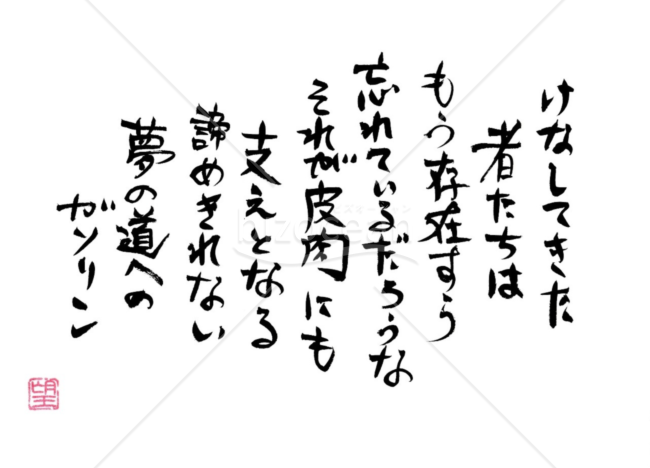 けなしてきた
者たちは
もう存在すら
忘れているだろうな
それが皮肉にも
支えとなる
諦めきれない
夢の道への
ガソリン
望
bizocean